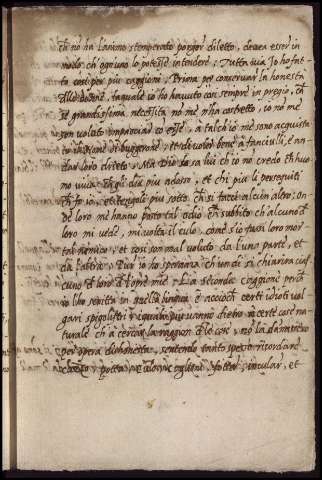 ch nõ ha l'animo stemperato porger diletto, deuea esser in
modo ch'ogniuno lo potesse intendere; Tuttauia Io ho fat-
to così per più caggioni; Prima per conseruar la honestà
delle donne, laquale io ho hauuto così sempre in pregio, ch
se grandissima necessità no me n'ha costretto, io nõ me
son voluto impacciar cõ esse, a talch io me sono acquista
to di buggerone, et di voler bene a fanciulli, e an
dar loro drieto. Ma Dio sa, lui ch io no credo ch huo
mo viua, ch gli dia più adosso, et ch più le perseguiti
ch fo io, et le zuoli più sotto ch si facci alcun altro: on
de loro me hanno posto tal odio, ch subito ch alcuno d
loro mi uede, mi volta il culo, come s'io fussi loro mor
tal nemico, et così son mal voluto da l'una parte, et
da l'altra. Pur io ho speranza ch un dì si chiarirà cias
cuno d loro d l'opre mie. La seconda caggione perch
io l'ho scritta in quella lingua è accioch certi idioti vol
gari spigolistri, i quali pur vanno dietro a certe cose na
turale ch a cercar la raggion d le cose, nõ la dannino
per opera dishonesta, sentendo tanto spesso ricordare
cazzo, potta, culo, coglioni, fotter, inculare, et